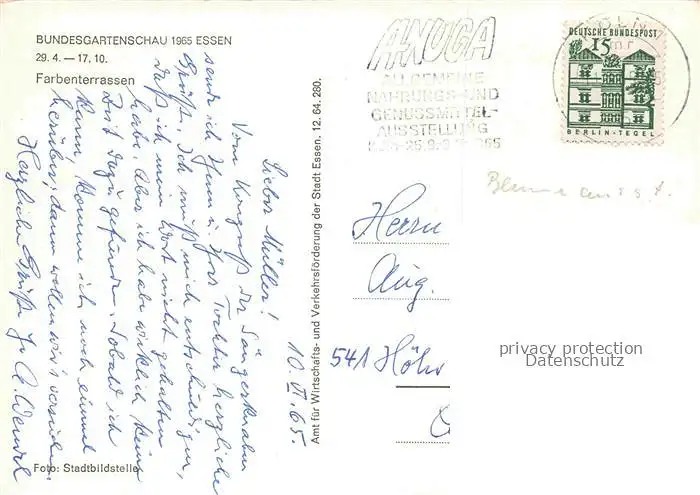 BUNDESGARTENSCHAU 1965 ESSEN
29. 4. — 17. 10.
Farbenterrassen
10. VI. 65.
Lieber Müller!
Vom Kongreß der Sängerknaben
sende ich Ihnen u. Ihrer Tochter herzliche
Grüße. Ich muß mich entschuldigen,
daß ich mein Wort nicht gehalten
habe. Aber ich habe wirklich keine
Zeit dazu gefunden. Sobald ich
kann, komme ich noch einmal
herüber, dann wollen wir's versuchen.
Herzliche Grüße Ihr
Foto: Stadtbildstelle
Amt für Wirtschafts- und Verkehrsförderung der Stadt Essen. 12. 64. 280.
ANUGA
ALLGEMEINE
NAHRUNGS- UND
GENUSSMITTEL-
AUSSTELLUNG
KÖLN
DEUTSCHE BUNDESPOST
15
BERLIN-TEGEL
Herrn
Aug.
541 Höhr
privacy protection
Datenschutz